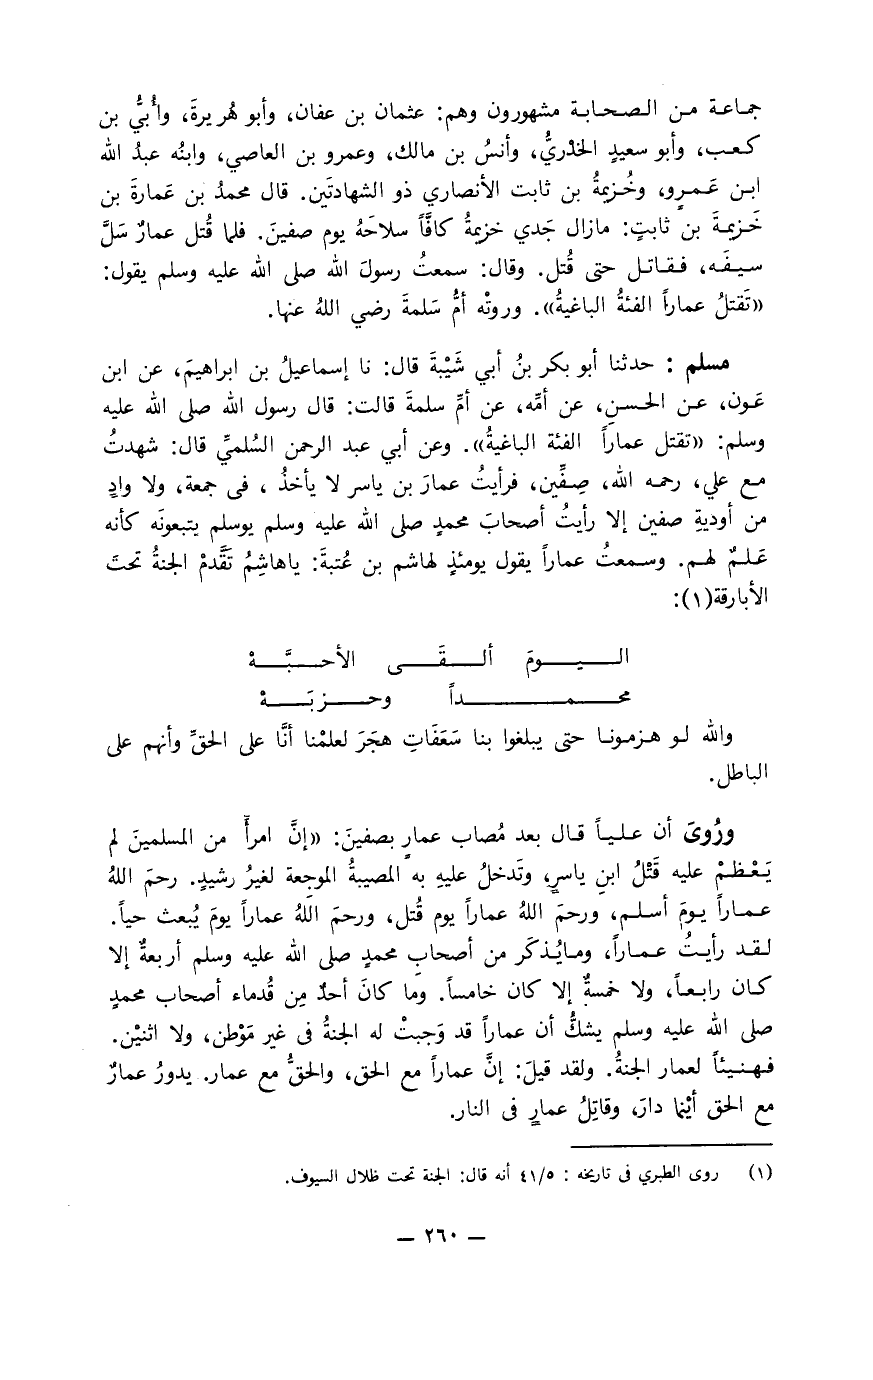 جماعة من الصحابة مشهورون وهم: عثمان بن عفان، وأبو هُريرةَ، وأُبيُّ بن
كعب، وأبو سعيدٍ الخدْريُّ، وأنسُ بن مالك، وعمرو بن العاصي، وابنُه عبدُ الله
ابن عَمرٍو، وخُزيمةُ بن ثابت الأنصاري ذو الشهادتَين. قال محمدُ بن عَمارةَ بن
خَزيمةَ بن ثابتٍ: مازال جَدي خزيمةُ كافَّاً سلاحَهُ يوم صفينَ. فلما قُتل عمارٌ سَلَّ
سيفَه، فقاتل حتى قُتل. وقال: سمعتُ رسولَ الله صلى الله عليه وسلم يقول:
«تَقتلُ عماراً الفئةُ الباغيةُ». وروتْه أمُّ سَلمةَ رضي اللهُ عنها.
مسلم : حدثنا أبو بكر بنُ أبي شَيْبةَ قال: نا إسماعيلُ بن ابراهيمَ، عن ابن
عَون، عن الحسنِ، عن أمِّه، عن أمِّ سلمةَ قالت: قال رسول الله صلى الله عليه
وسلم: «تقتل عماراً الفئة الباغيةُ». وعن أبي عبد الرحمن السُلميِّ قال: شهدتُ
مع علي، رحمه الله، صِفِّين، فرأيتُ عمارَ بن ياسر لا يأخذُ ، فى جمعة، ولا وادٍ
من أوديةِ صفين إلا رأيتُ أصحابَ محمدٍ صلى الله عليه وسلم يوسلم يتبعونَه كأنه
عَلمٌ لهم. وسمعتُ عماراً يقول يومئذٍ لهاشم بن عُتبةَ: ياهاشِمُ تَقَّدمْ الجنةُ تحتَ
الأبارقة(١):
اليومَ ألقَى الأحبَّهْ
محمداً وحزبَهْ
والله لو هزمونا حتى يبلغوا بنا سَعَفَاتِ هجَرَ لعلمْنا أنَّا على الحقِّ وأنهم على
الباطل.
ورُوىَ أن علياً قال بعد مُصاب عمارٍ بصفينَ: «إنَّ امرأً من المسلمينَ لم
يَعْظمْ عليه قَتْلُ ابنِ ياسرٍ، وتَدخلُ عليهِ به المصيبةُ الموجعة لغيرُ رشيدٍ. رحمَ اللهُ
عماراً يومَ أسلم، ورحمَ اللهُ عماراً يوم قُتل، ورحمَ اللهُ عماراً يومَ يُبعث حياً.
لقد رأيتُ عماراً، ومايُذكَر من أصحابِ محمدٍ صلى الله عليه وسلم أربعةٌ إلا
كان رابعاً، ولا خمسةٌ إلا كان خامساً. وما كانَ أحدٌ مِن قُدماء أصحاب محمدٍ
صلى الله عليه وسلم يشكُّ أن عماراً قد وَجبتْ له الجنةُ فى غيرِ مَوْطن، ولا اثنيْن.
فهنيئاً لعمار الجنةُ. ولقد قيلَ: إنَّ عماراً مع الحق، والحقُّ مع عمار. يدورُ عمارٌ
مع الحق أيْنما دارَ، وقاتِلُ عمارٍ فى النار.
(١) روى الطبري فى تاريخه : ٤١/٥ أنه قال: الجنة تحت ظلال السيوف.
— ٢٦٠ —